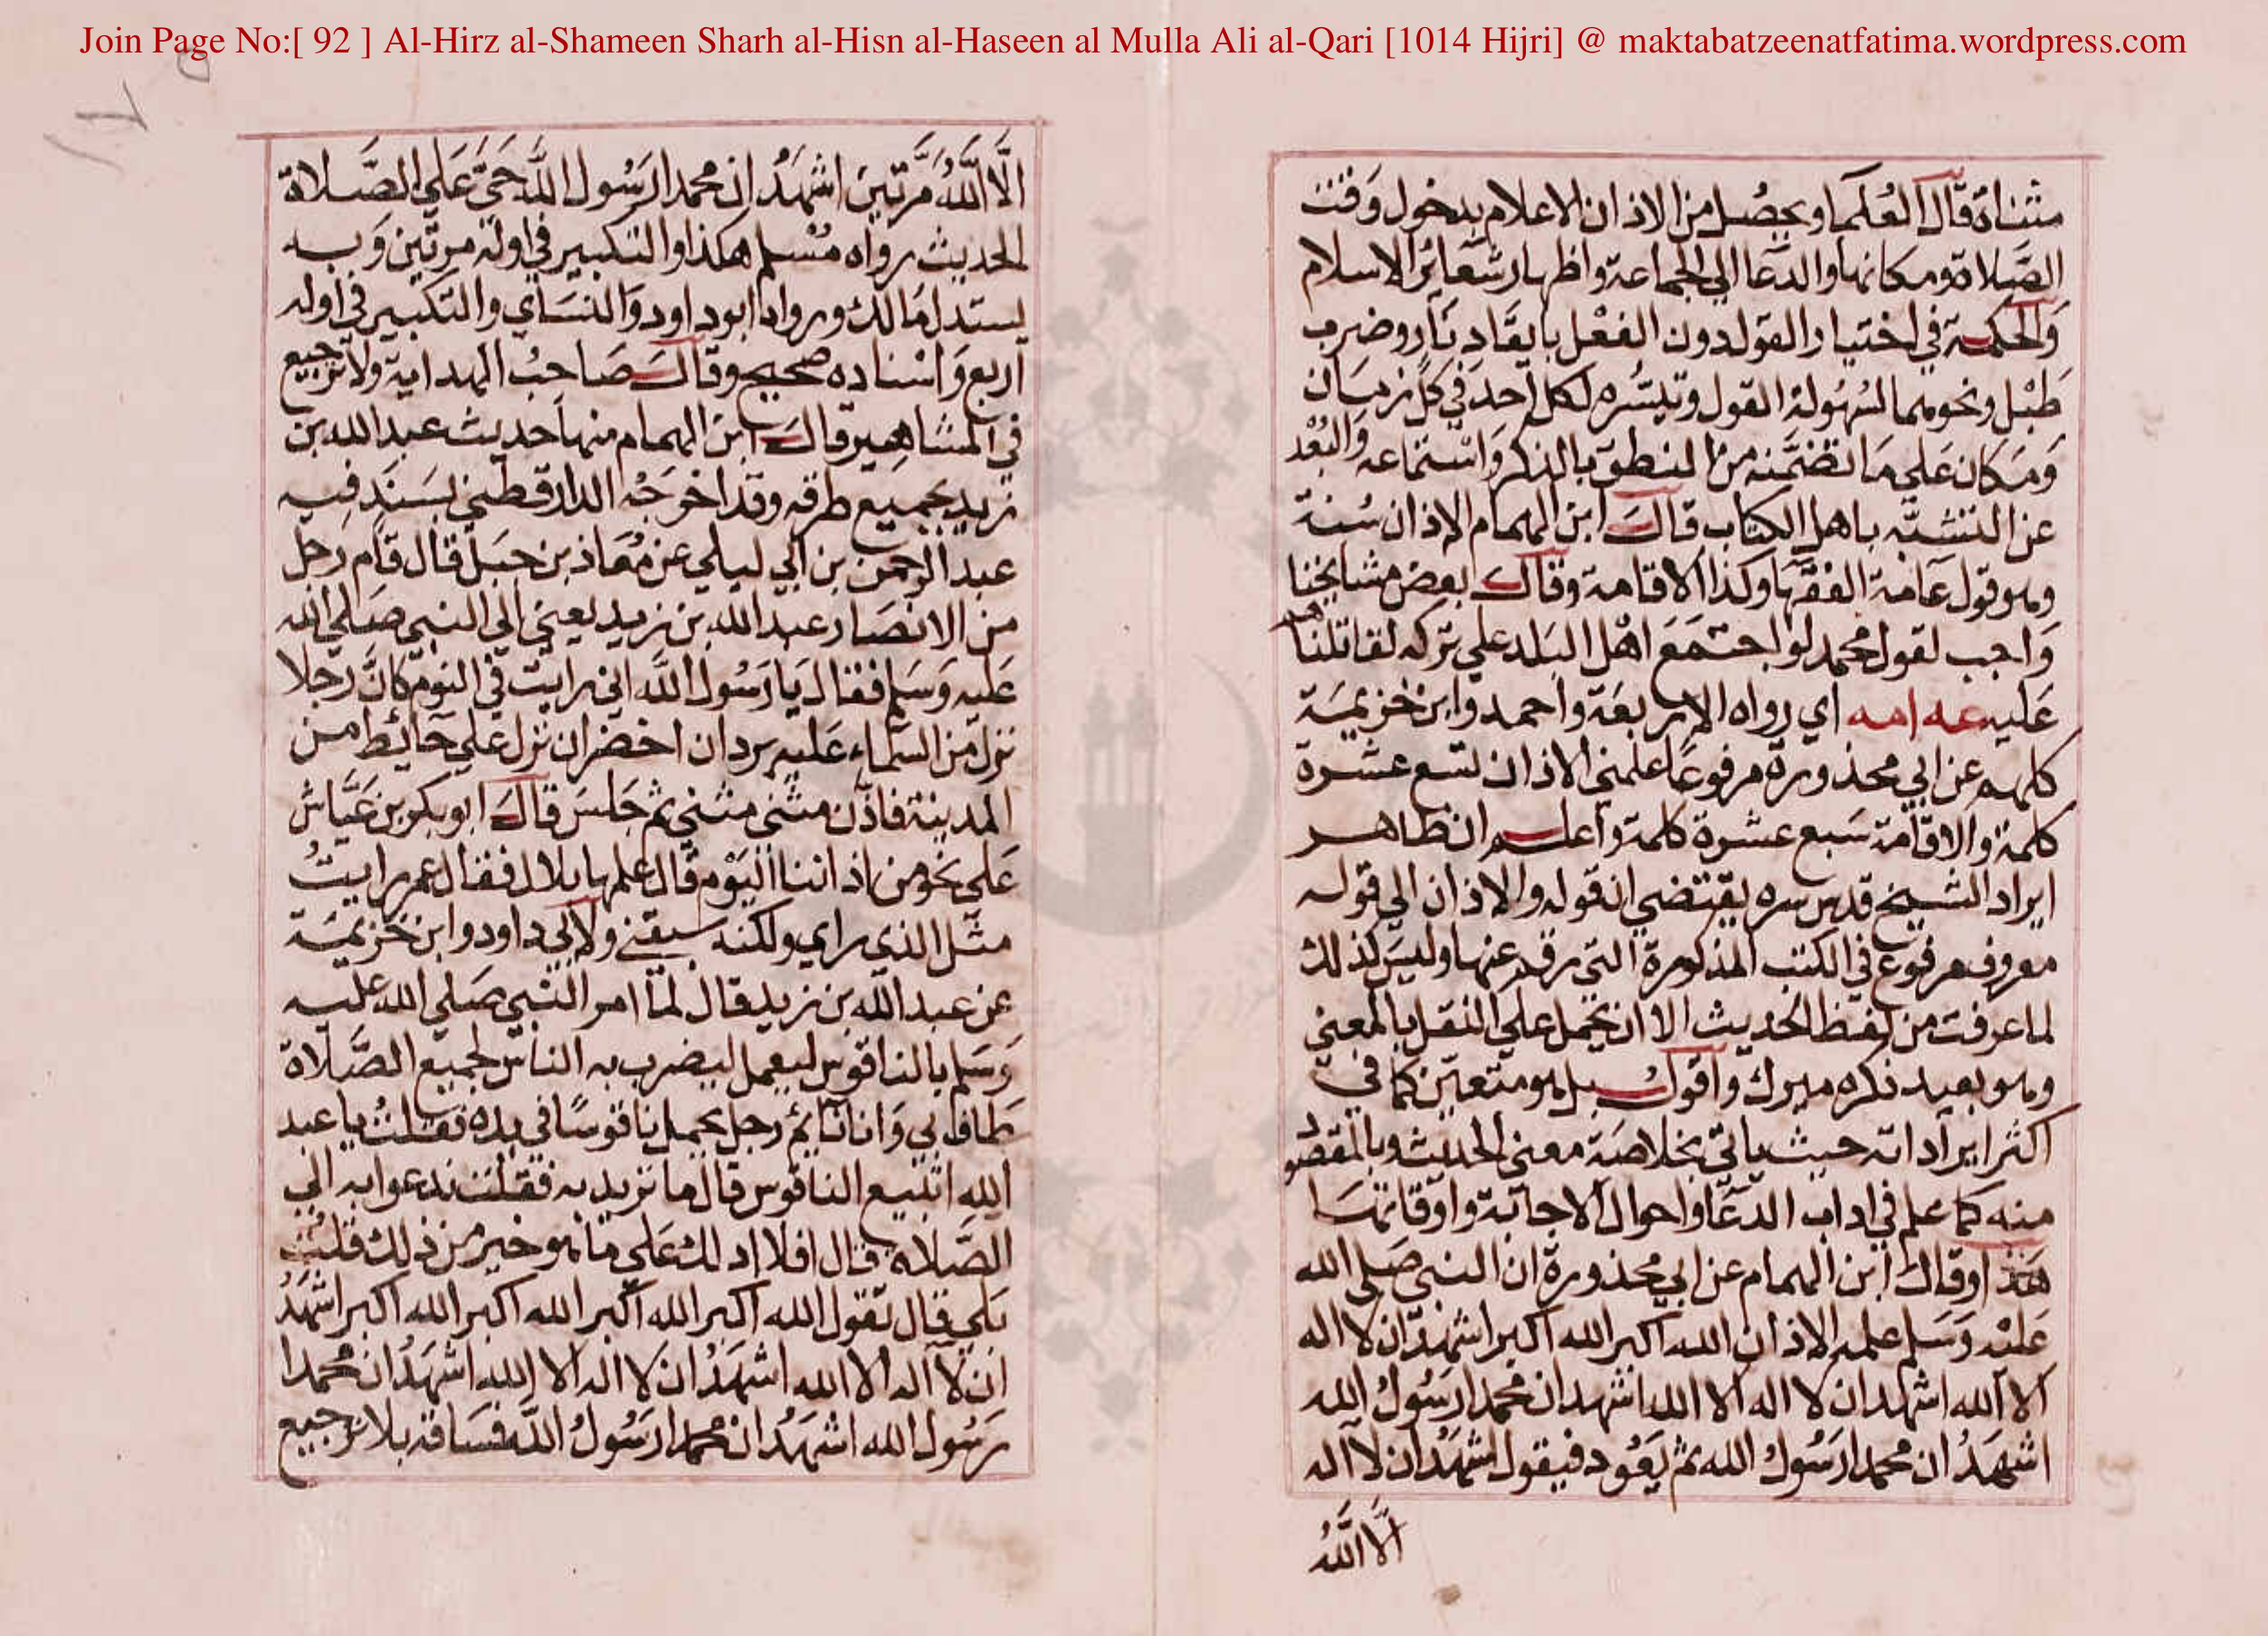 Join Page No:[ 92 ] Al-Hirz al-Shameen Sharh al-Hisn al-Haseen al Mulla Ali al-Qari [1014 Hijri] @ maktabatzeenatfatima.wordpress.com
مثناة قال العلما ويحصل من الاذان الاعلام بدخول وقت
الصلاة ومكانها والدعا الي الجماعة واظهار شعائر الاسلام
والحكمة في اختيار القول دون الفعل بايقاد نار وضرب
طبل ونحوهما لسهولة القول وتيسره لكل احد في كل زمان
ومكان علي ما تضمنه من النطق بالذكر واستماعه والبعد
عن التشبه باهل الكتاب قال ابن الهمام الاذان سنة
وهو قول عامة الفقها وكذا الاقامة وقال بعض مشايخنا
واجب لقول محمد لو اجتمع اهل البلد علي تركه لقاتلناهم
عليه عه امه اي رواه الاربعة واحمد وابن خزيمة
كلهم عن ابي محذورة مرفوعا علمني الاذان تسع عشرة
كلمة والاقامة سبع عشرة كلمة واعلم ان ظاهر
ايراد الشيخ قدس سره يقتضي ان قوله والاذان الي قوله
معروف مرفوع في الكتب المذكورة التي رقم عنها وليس كذلك
لما عرفت من لفظ الحديث الا ان يحمل علي النقل بالمعني
وهو بعيد ذكره ميرك واقول بل هو متعين كما في
اكثر ايراداته حيث ياتي بخلاصة معني الحديث وبالمقصود
منه كما علم في اداب الدعا واحوال الاجابة واوقاتها
هذا وقال ابن الهمام عن ابي محذورة ان النبي صلي الله
عليه وسلم علمه الاذان الله اكبر الله اكبر اشهد ان لا اله
الا الله اشهد ان لا اله الا الله اشهد ان محمدا رسول الله
اشهد ان محمدا رسول الله ثم يعود فيقول اشهد ان لا اله
الا الله
الا الله مرتين اشهد ان محمدا رسول الله حي علي الصلاة
الحديث رواه مسلم هكذا والتكبير في اوله مرتين وبه
يستدل مالك ورواه ابو داود والنساي والتكبير في اوله
اربع واسناده صحيح وقال صاحب الهداية ولا ترجيع
في المشاهير قال ابن الهمام منها حديث عبد الله بن
زيد بجميع طرقه وقد اخرجه الدارقطني بسند فيه
عبد الرحمن بن ابي ليلي عن معاذ بن جبل قال قام رجل
من الانصار عبد الله بن زيد يعني الي النبي صلي الله
عليه وسلم فقال يا رسول الله اني رايت في النوم كان رجلا
نزل من السماء عليه بردان اخضران نزل علي حائط من
المدينة فاذن مثني مثني ثم جلس قال ابو بكر بن عياش
علي نحو من اذاننا اليوم قال علمها بلال فقال عمر رايت
مثل الذي راي ولكنه سبقني ولابي داود وابن خزيمة
عن عبد الله بن زيد قال لما امر النبي صلي الله عليه
وسلم بالناقوس ليعمل ليضرب به الناس لجميع الصلاة
طاف بي وانا نائم رجل يحمل ناقوسا في يده فقلت يا عبد
الله اتبيع الناقوس قال ما تريد به فقلت ندعوا به الي
الصلاة قال افلا ادلك علي ما هو خير من ذلك قلت
بلي قال تقول الله اكبر الله اكبر الله اكبر الله اكبر اشهد
ان لا اله الا الله اشهد ان لا اله الا الله اشهد ان محمدا
رسول الله اشهد ان محمدا رسول الله فساقه بلا ترجيع